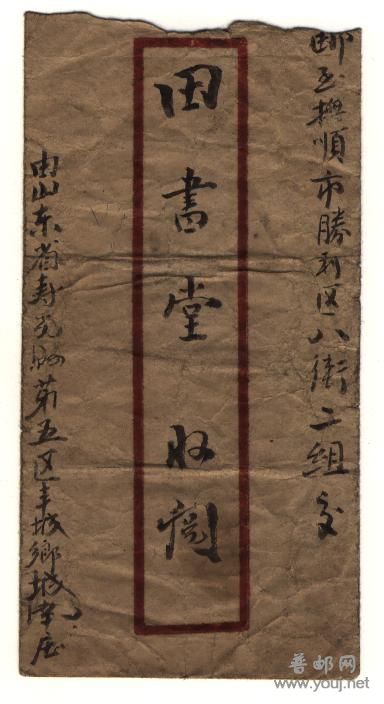 邮至撫順市勝利区八街二組交
田書堂 收閲
由山东省寿光縣第五区丰城鄉城南庄
普邮网
www.youj.net